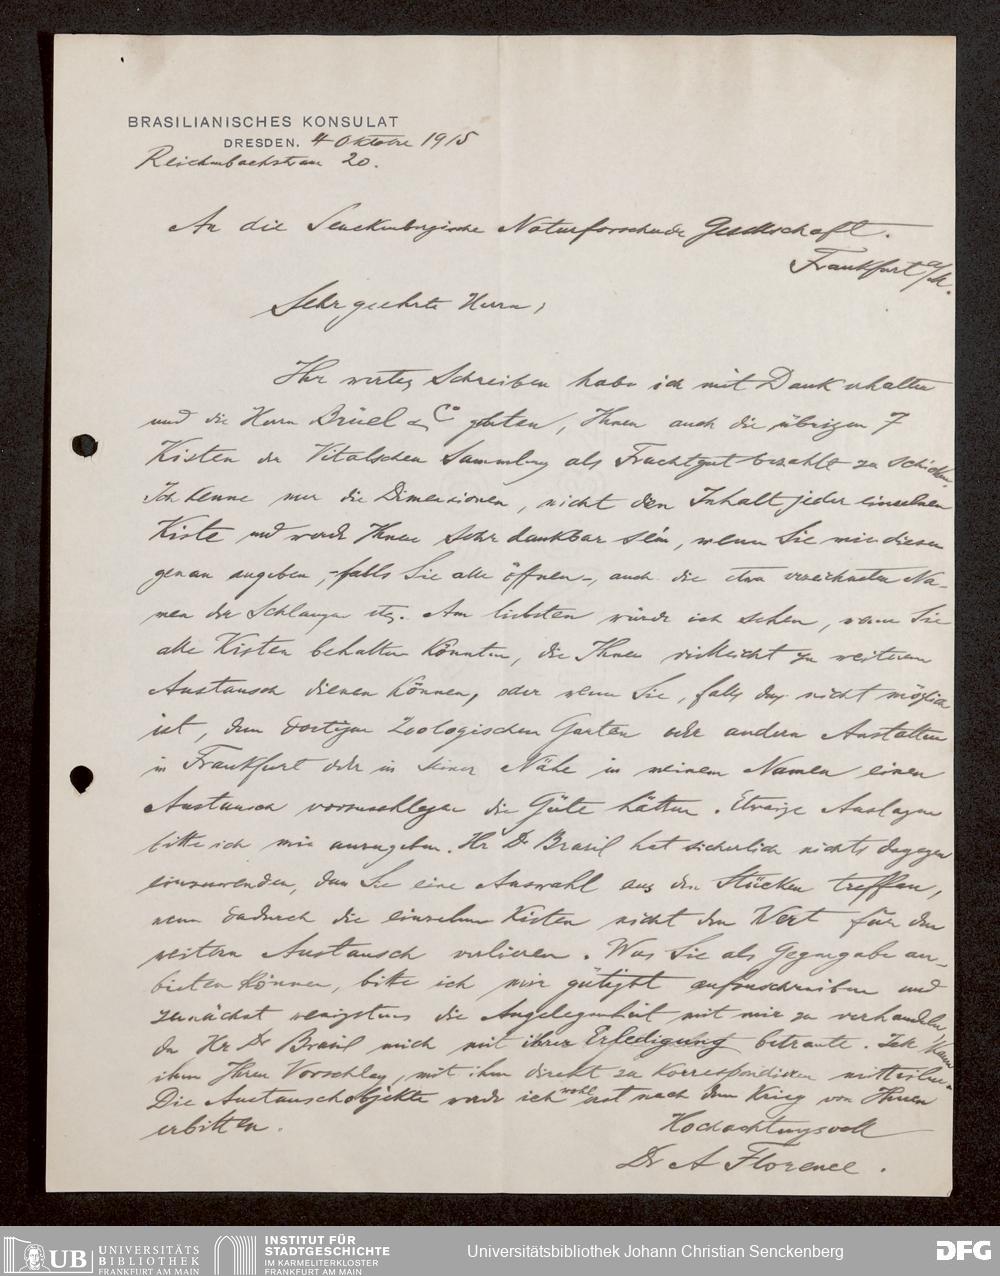 BRASILIANISCHES KONSULAT
DRESDEN. 4 Oktober 1915
Reichenbachstrasse 20.
An die Senckenbergische Naturforschende Gesellschaft.
Frankfurt a/M.
Sehr geehrte Herrn,
Ihr wertes Schreiben habe ich mit Dank erhalten
und die Herrn Brüel & Co gebeten, Ihnen auch die übrigen 7
Kisten der Vitalschen Sammlung als Frachtgut bezahlt zu schicken.
Ich kenne nur die Dimensionen, nicht den Inhalt jeder einzelnen
Kiste und werde Ihnen sehr dankbar sein, wenn Sie mir diesen
genau angeben, -falls Sie alle öffnen-, auch die etwa verzeichneten Na-
men der Schlangen etc. Am liebsten würde ich sehen, wenn Sie
alle Kisten behalten könnten, die Ihnen vielleicht zu weiterem
Austausch dienen können, oder wenn Sie, falls das nicht möglich
ist, dem dortigen Zoologischen Garten oder andern Anstalten
in Frankfurt oder in seiner Nähe in meinem Namen einen
Austausch vorzuschlagen die Güte hätten. Etwaige Auslagen
bitte ich mir anzugeben. Hr Dr Brasil hat sicherlich nichts dagegen
einzuwenden, dass Sie eine Auswahl aus den Stücken treffen,
wenn dadurch die einzelnen Kisten nicht den Wert für den
weitern Austausch verlieren. Was Sie als Gegengabe an-
bieten können, bitte ich mir gütigst aufzuschreiben und
zunächst wenigstens die Angelegenheit mit mir zu verhandeln,
da Hr Dr Brasil mich mit ihrer Erledigung betraute. Ich kann
ihm Ihren Vorschlag, mit ihm direkt zu korrespondieren mitteilen.
Die Austauschobjekte werde ich wohl erst nach dem Krieg von Ihnen
erbitten.
Hochachtungsvoll
Dr A Florence.
UB UNIVERSITÄTS
BIBLIOTHEK
FRANKFURT AM MAIN
INSTITUT FÜR
STADTGESCHICHTE
IM KARMELITERKLOSTER
FRANKFURT AM MAIN
Universitätsbibliothek Johann Christian Senckenberg
DFG